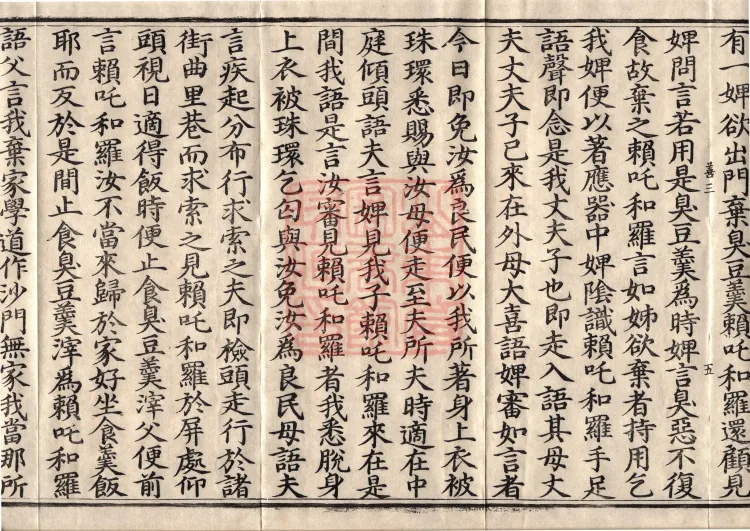 有一婢欲出門棄臭豆羹賴吒和羅還顧見
婢問言若用是臭豆羹為時婢言臭惡不復
善三
五
食故棄之賴吒和羅言如姊欲棄者持用乞
我婢便以著應器中婢陰識賴吒和羅手足
語聲即念是我丈夫子也即走入語其母丈
夫丈夫子已來在外母大喜語婢審如言者
今日即免汝為良民便以我所著身上衣被
珠環悉賜與汝母便走至夫所夫時適在中
庭傾頭語夫言婢見我子賴吒和羅來在是
間我語是言汝審見賴吒和羅者我悉脫身
上衣被珠環乞匃與汝免汝為良民母語夫
言疾起分布行求索之夫即檢頭走行於諸
街曲里巷而求索之見賴吒和羅於屏處仰
頭視日適得飯時便止食臭豆羹滓父便前
言賴吒和羅汝不當來歸於家好坐食羹飯
耶而反於是間止食臭豆羹滓為賴吒和羅
語父言我棄家學道作沙門無家我當那所